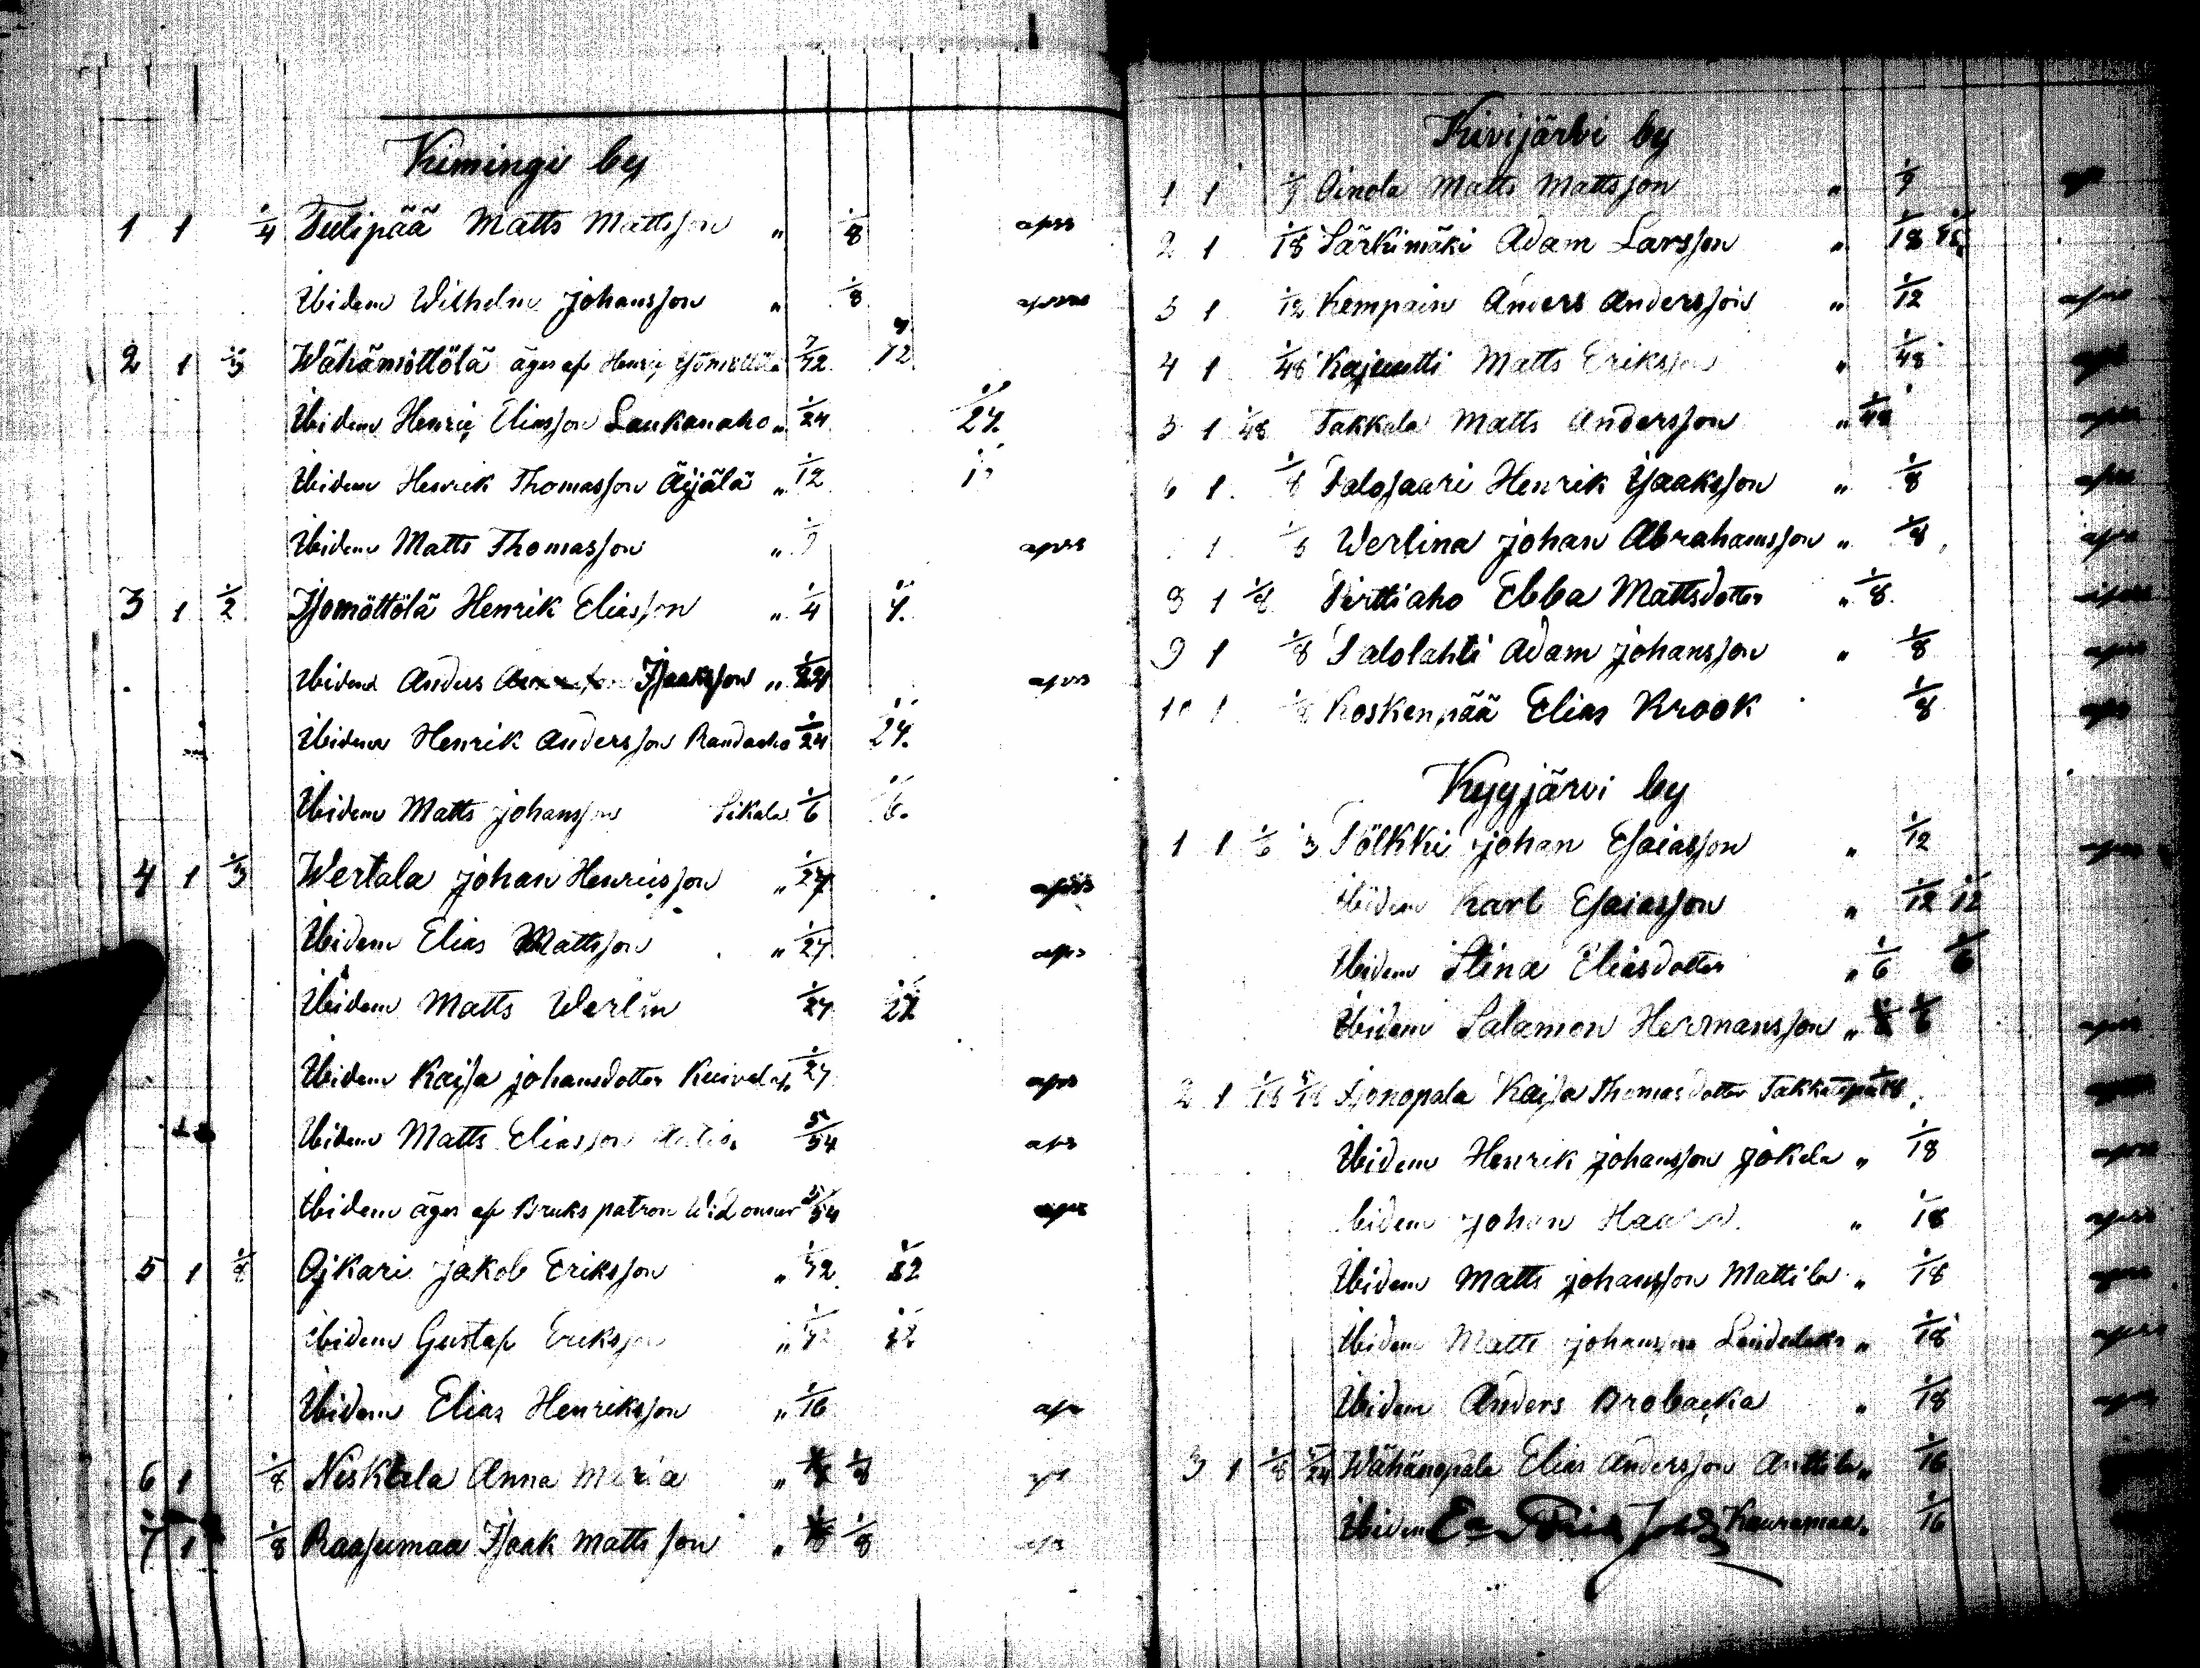 Kimingi by
1 1 1/4 Tulipää Matts Mattsson " 1/8 aprs
Ibidem Wilhelm Johansson " 1/8
2 1 1/3 Wähämöttölä äges af Henric Isomöttölä 7/72
Ibidem Henric Eliasson Laukanaho " 1/24 1/24
Ibidem Henrik Thomasson Äijälä " 1/12
Ibidem Matts Thomasson " aprs
3 1 1/2 Isomöttölä Henrik Eliasson " 1/4 1/4
Ibidem Anders Isaaksson " 1/24 aprs
Ibidem Henrik Andersson Randaaho 1/24 1/24
Ibidem Matts Johansson Sikala 1/6 1/6
4 1 1/3 Wertala Johan Henricsson " 1/27 aprs
Ibidem Elias Mattsson " 1/27 aprs
Ibidem Matts Werlin 1/27 1/27
Ibidem Kaisa Johansdotter 1/27 aprs
Ibidem Matts Eliasson 5/54 aprs
Ibidem äges af Brukspatron 5/54 aprs
5 1 1/8 Ojkari Jakob Eriksson " 1/32 1/32
Ibidem Gustaf Eriksson " 1/32 1/32
Ibidem Elias Henriksson " 1/16
6 1 1/8 Niskala Anna Maria " 1/8
7 1 1/8 Raasumaa Isaak Mattsson " 1/8
Kivijärvi by
1 1 1/9 Ainola Matts Mattsson " 1/9
2 1 1/18 Särkimäki Adam Larsson " 1/18 1/18
3 1 1/12 Kempain Anders Andersson " 1/12
4 1 1/48 Kajuutti Matts Eriksson " 1/48
5 1 1/48 Takkala Matts Andersson " 1/48
6 1 1/8 Talosaari Henrik Isaaksson " 1/8
1 1/8 Werlina Johan Abrahamsson " 1/8
8 1 1/8 Pirttiaho Ebba Mattsdotter " 1/8
9 1 1/8 Salolahti Adam Johansson " 1/8
10 1 1/8 Koskenpää Elias Krook 1/8
Kyyjärvi by
1 1 1/6 1/3 Pölkki Johan Esaiasson " 1/12
Ibidem Karl Esaiasson " 1/12 1/12
Ibidem Stina Eliasdotter " 1/6 1/6
Ibidem Salamon Hermansson " 1/6
2 1 1/18 5/18 Isonopala Kaisa Thomasdotter 1/18
Ibidem Henrik Johansson Jokela " 1/18
Ibidem Johan " 1/18
Ibidem Matts Johansson Mattila " 1/18
Ibidem Matts Johansson " 1/18
Ibidem Anders Brobacka " 1/18
3 1 1/8 5/24 Wähänopala Elias Andersson Anttila " 1/16
Ibidem Kauramaa " 1/16